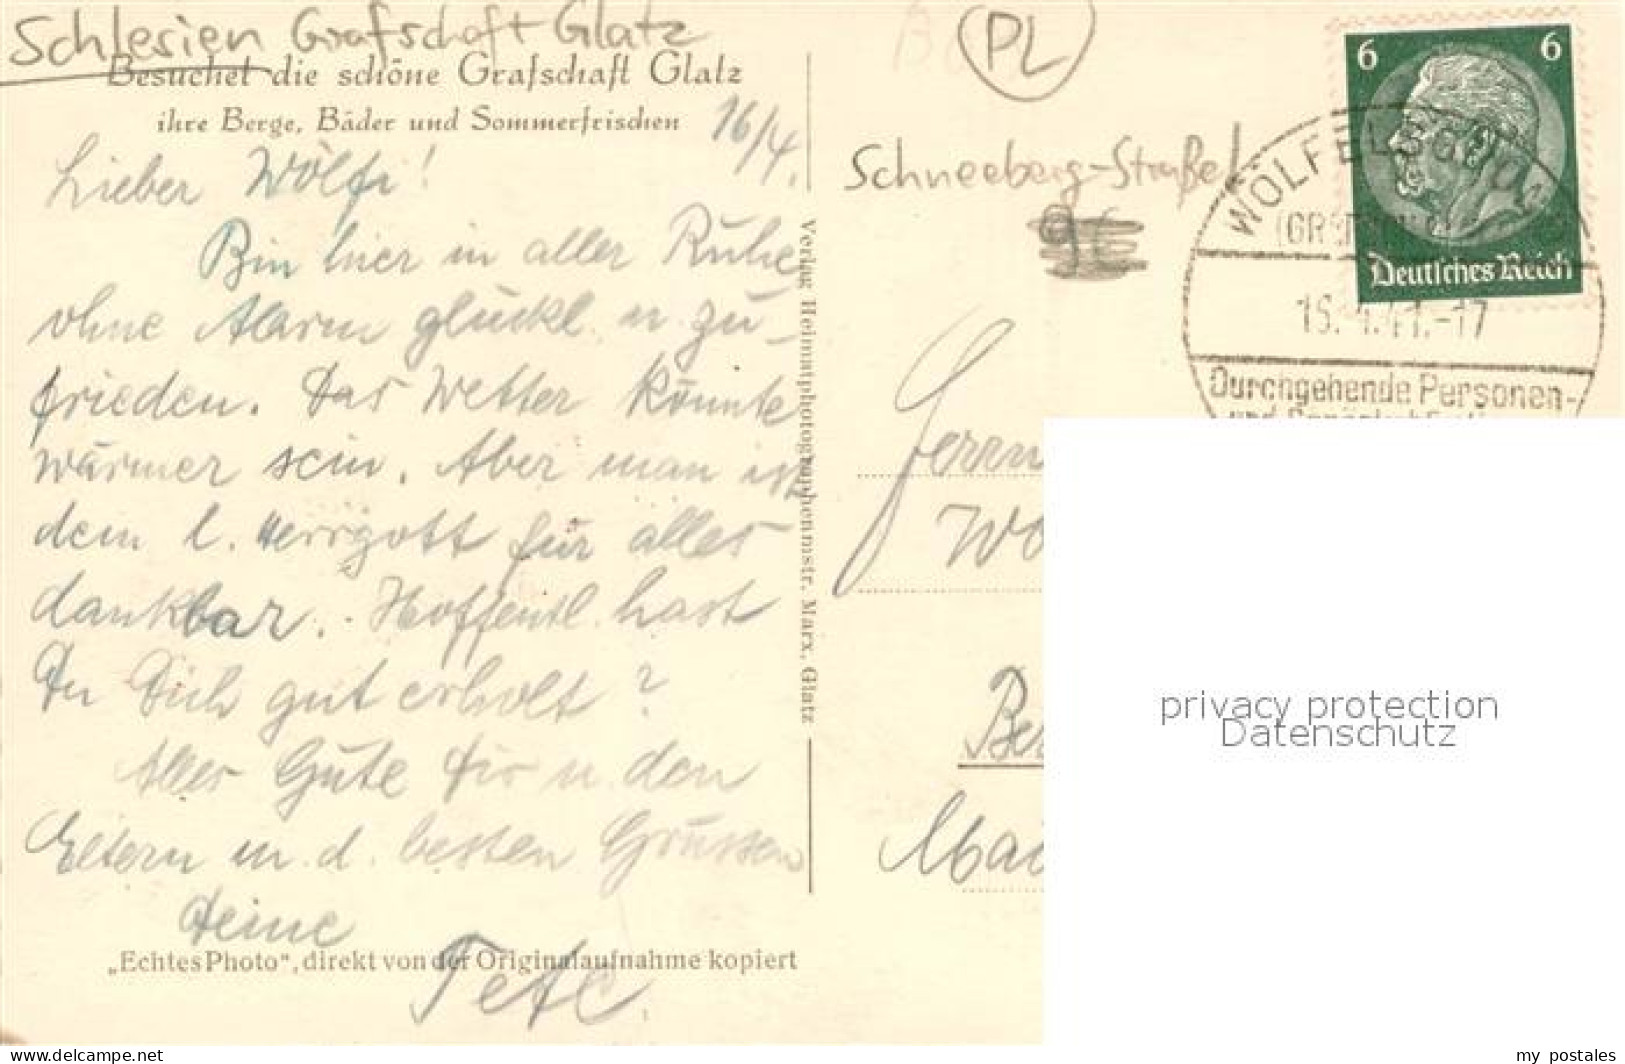 Schlesien Grafschaft Glatz
Besuchet die schöne Grafschaft Glatz
ihre Berge, Bäder und Sommerfrischen
16/4.
Lieber Wölfi!
Bin hier in aller Ruhe
ohne Alarm glückl. u. zu-
frieden. Das Wetter könnte
wärmer sein. Aber man ist
dem l. Herrgott für alles
dankbar. Hoffentl. hast
Du Dich gut erholt?
Alles Gute Dir u. den
Eltern m. d. besten Grüssen
Deine
„Echtes Photo“, direkt von der Originalaufnahme kopiert
Verlag Heimatphotographenmstr. Marx, Glatz
PL
Schneeberg-Straße
6 6
Deutsches Reich
WÖLFELSGRUND
16.4.41.-17
Durchgehende Personen-
Herrn
Wo
Be
Mai
privacy protection
Datenschutz
www.delcampe.net
my_postales